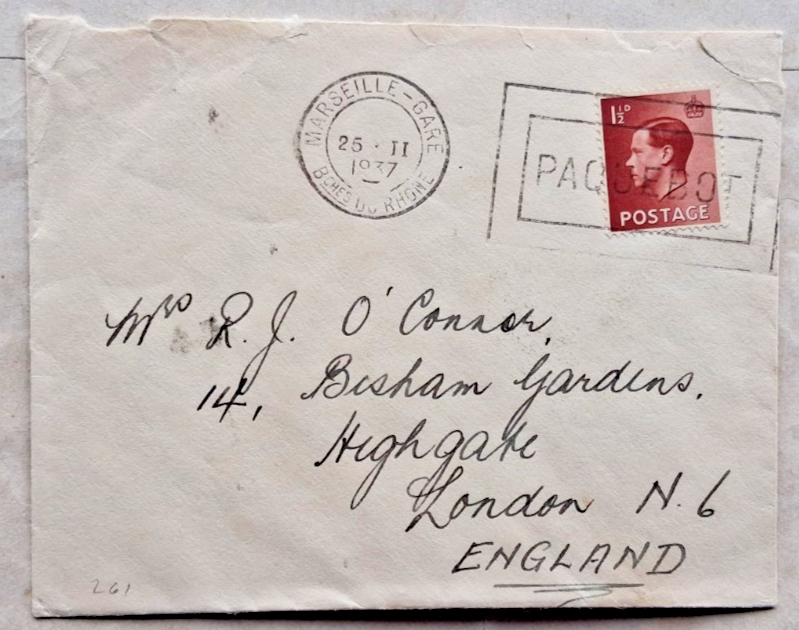 MARSEILLE-GARE
25 · II
1937
BCHES DU RHONE
1½D
PAQUEBOT
POSTAGE
Mrs R. J. O'Connor,
14, Bisham Gardens.
Highgate
London N. 6
ENGLAND
261